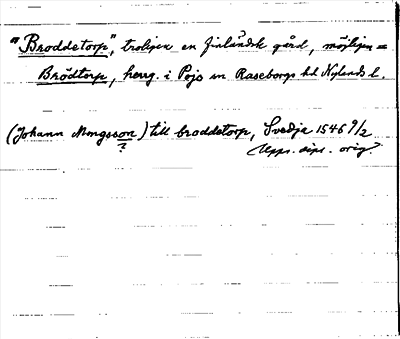 "Broddetorp", troligen en finländsk gård, möjligen =
Brödtorp, herrg. i Pojo sn Raseborgs hd Nylands l.
(Johann Mongsson) till broddetorp, Svedja 1546 9/2
?
Upps. dipl. orig?